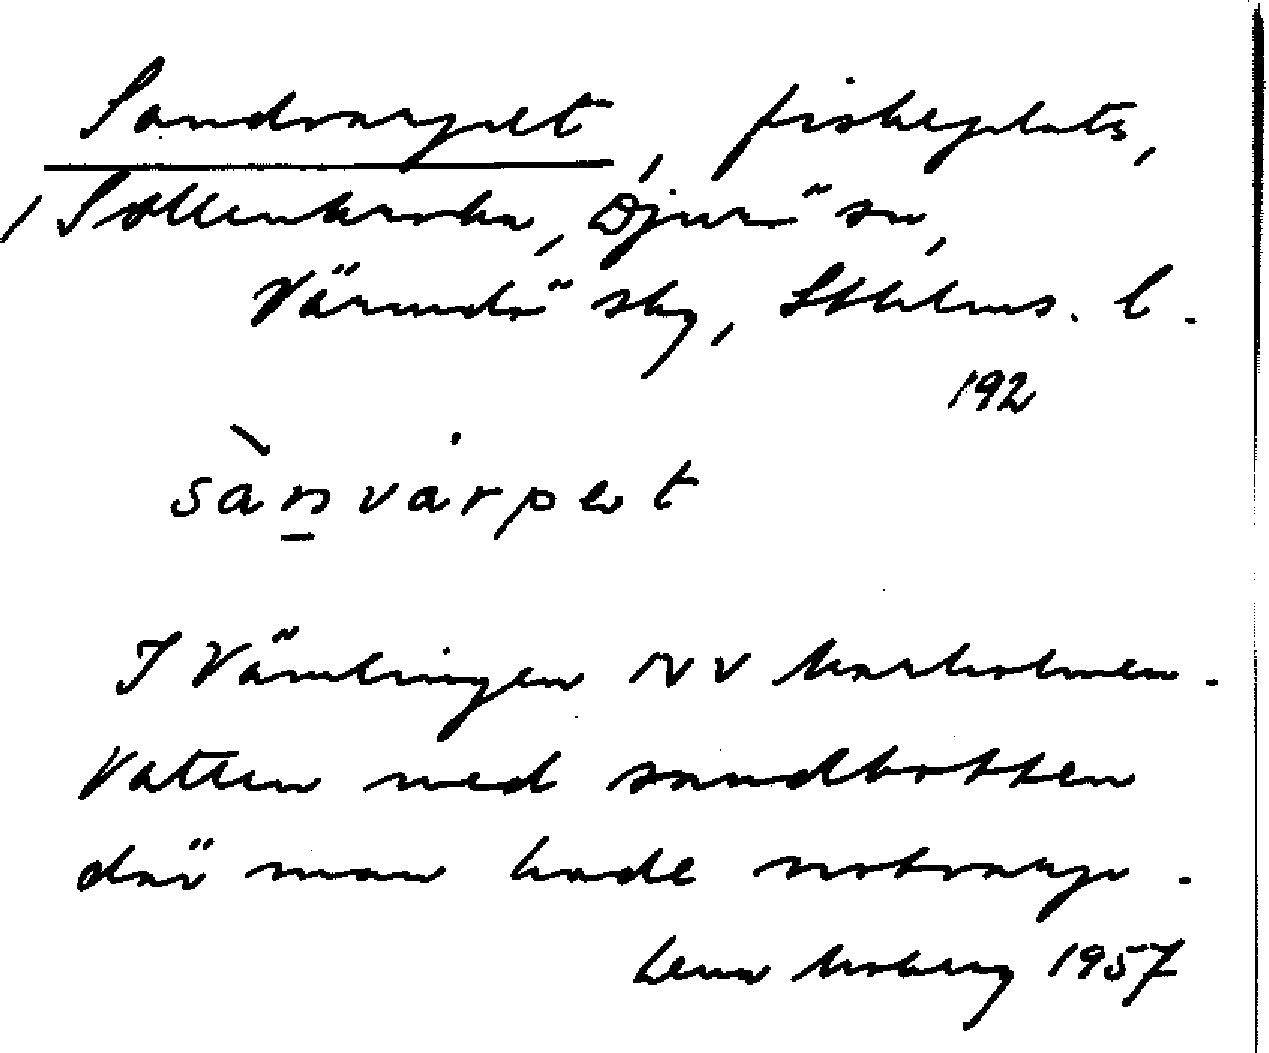 Sandvarpet, fiskeplats,
/ Sollenkroka, Djurö sn,
Värmdö skg, Sthlms. l.
192
sànvarpet
I Vämlingen NV Morholmen.
Vatten med sandbotten
där man hade notvarp.
Lena Moberg 1957